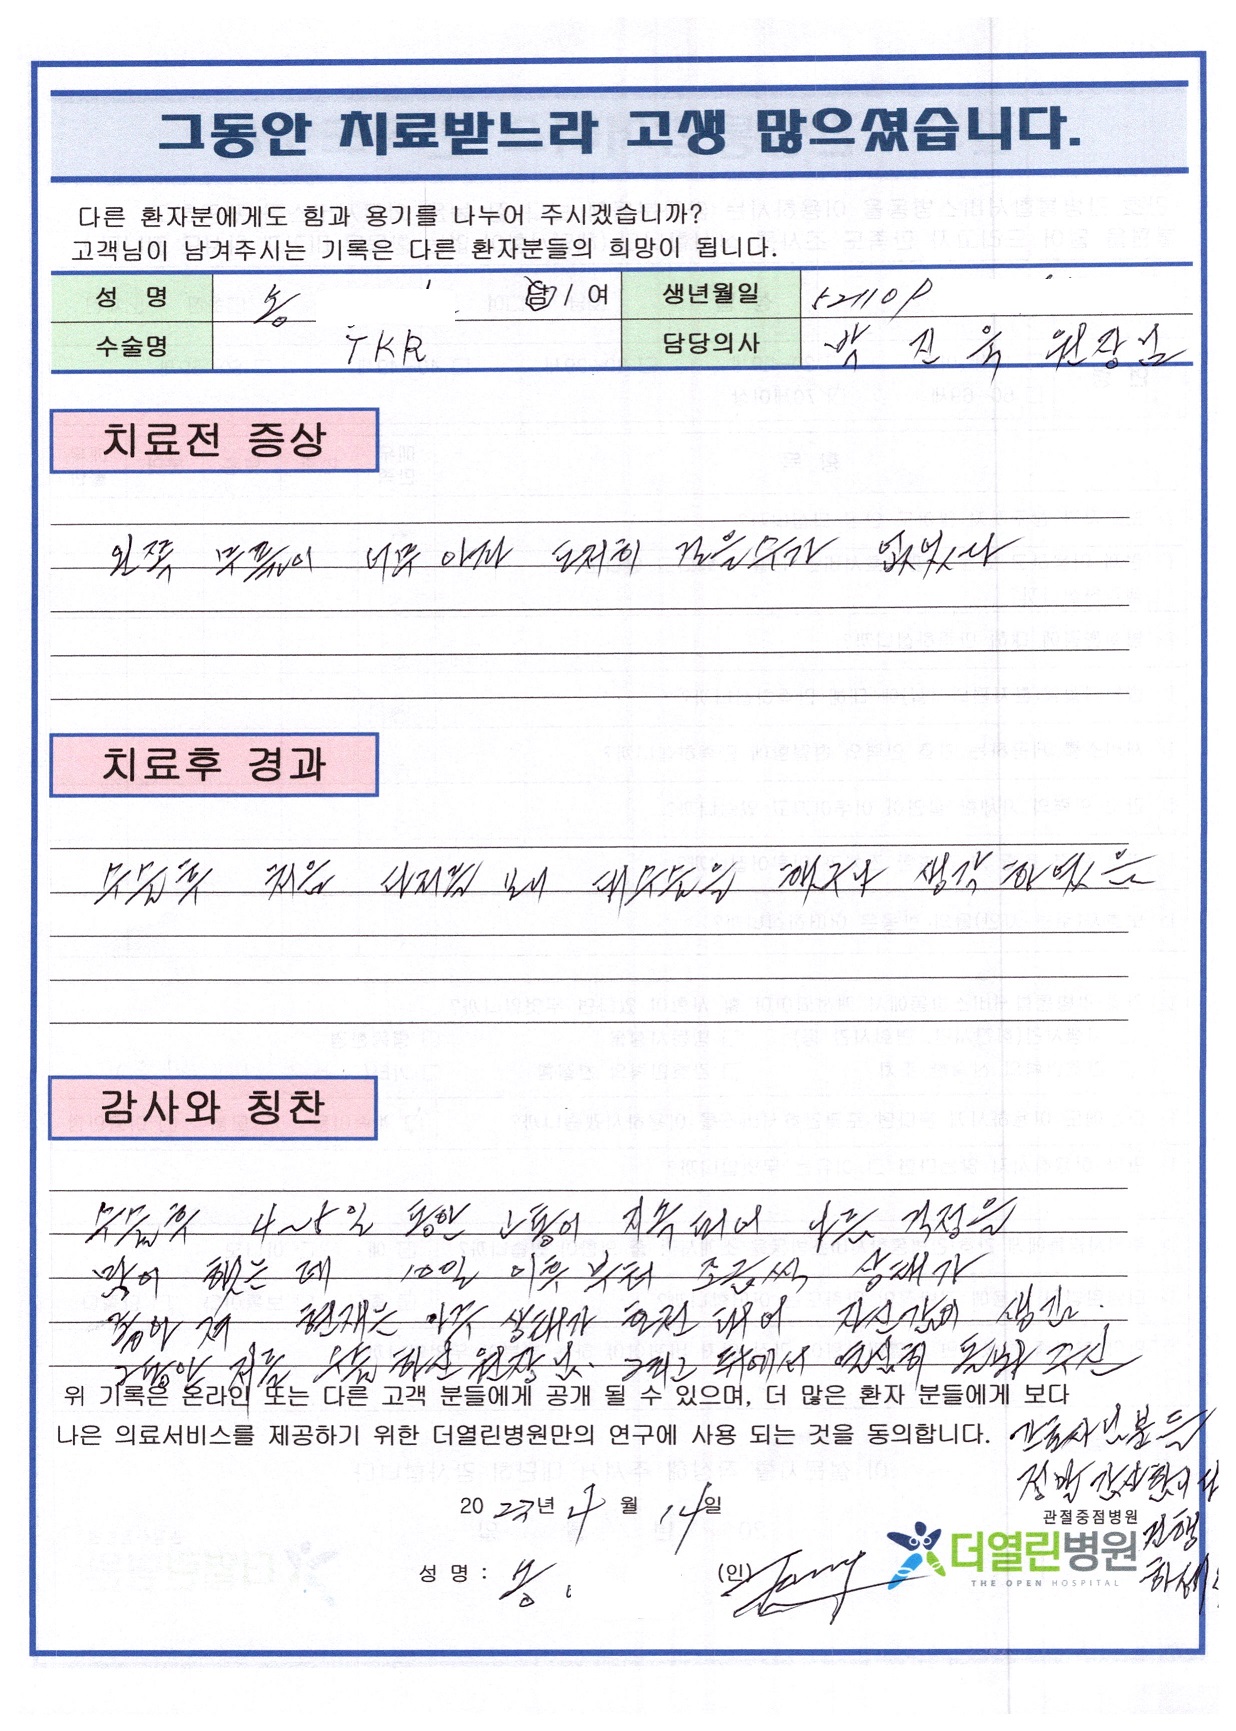 그동안 치료받느라 고생 많으셨습니다.
다른 환자분에게도 힘과 용기를 나누어 주시겠습니까?
고객님이 남겨주시는 기록은 다른 환자분들의 희망이 됩니다.
성 명 남 / 여 생년월일
수술명 TKR 담당의사 박 진 욱 원장님
치료전 증상
왼쪽 무릎이 너무 아파 도저히 걸을수가 없었으나
치료후 경과
수술후 처음 보내 생각 하였음
감사와 칭찬
수술후 4~5일 동안 고통이 지속 되어 다른 걱정을
많이 했는데 10일 이후 부터 조금씩 상태가
좋아 져 현재는 아주 상태가 호전 되어 자신감이 생김.
그동안 저를 수술 하신 원장님. 그리고 뒤에서 열심히 돌봐 주신
위 기록은 온라인 또는 다른 고객 분들에게 공개 될 수 있으며, 더 많은 환자 분들에게 보다
나은 의료서비스를 제공하기 위한 더열린병원만의 연구에 사용 되는 것을 동의합니다.
간호사님분들
정말 감사합니다
2023년 4월 14일
관절중점병원
더열린병원
THE OPEN HOSPITAL
건행
하세
성 명 : (인)